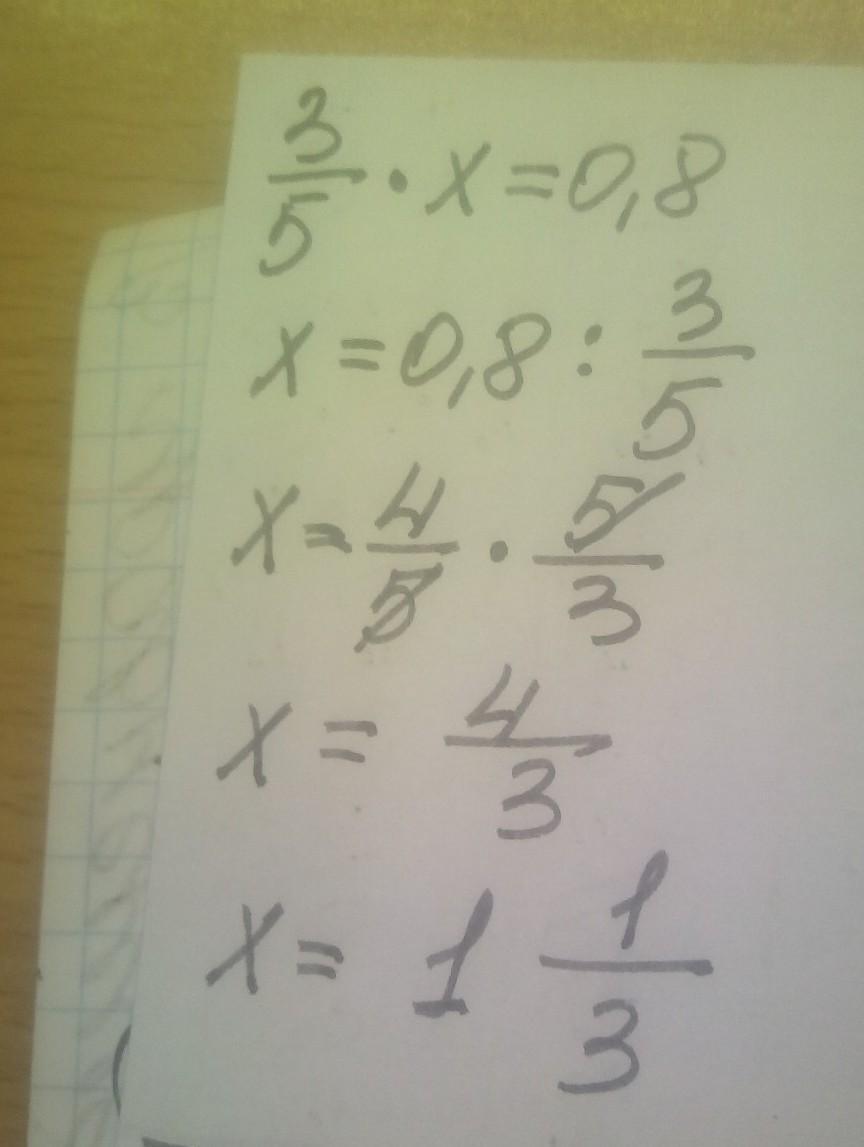 3/5 · x = 0,8
x = 0,8 : 3/5
x = 4/5 · 5/3
x = 4/3
x = 1 1/3